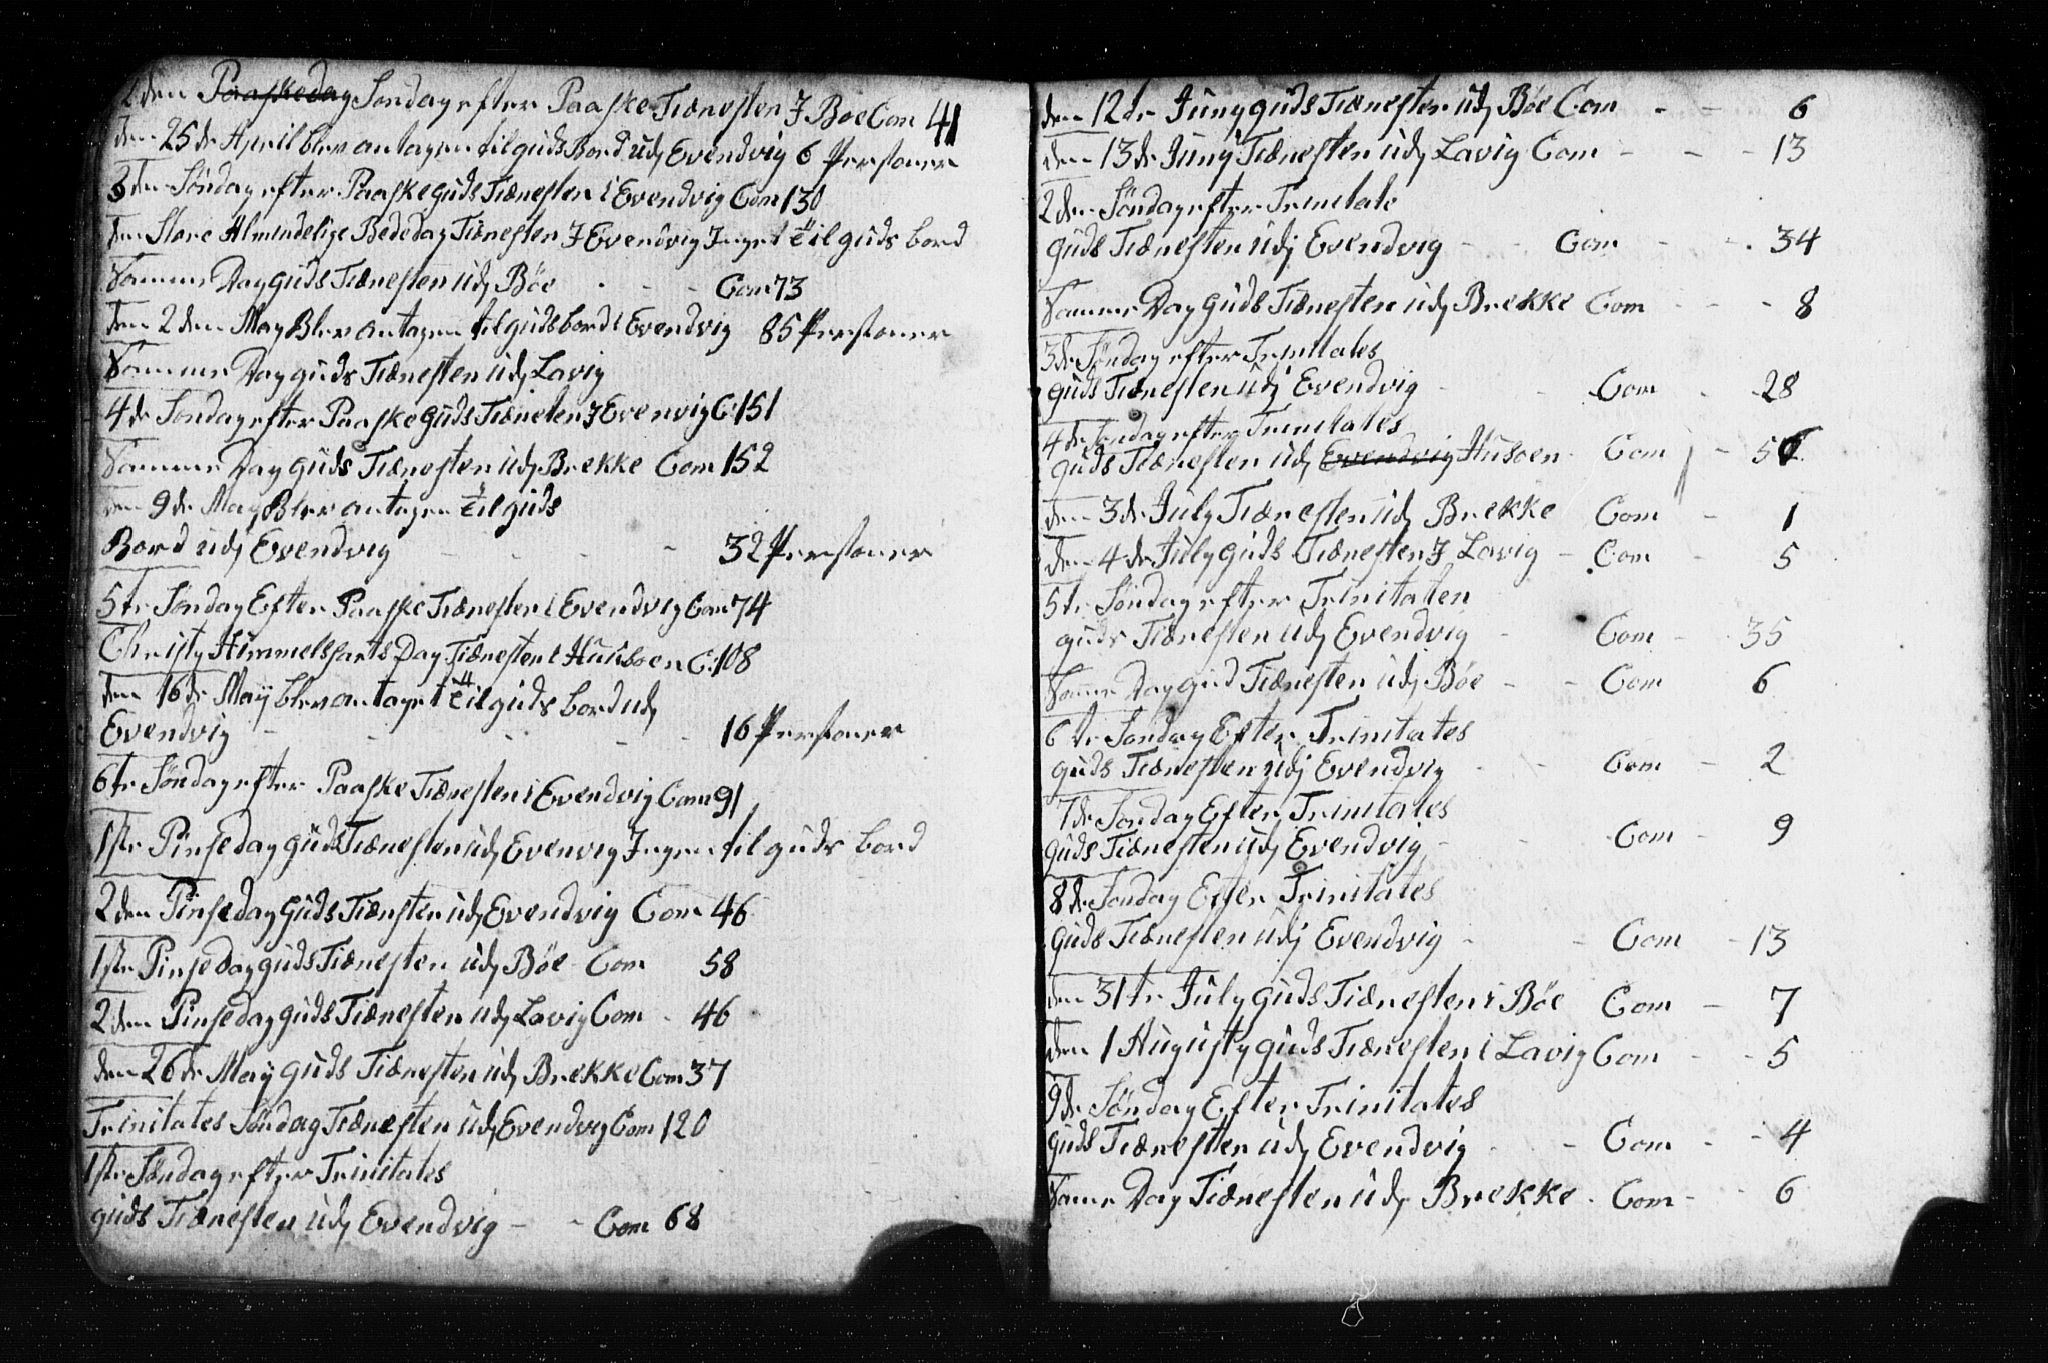 2den Paaskedag Søndag efter Paaske Tiænesten J Boe Com 41
den 25de April blev antagen til guds Bord udj Evendvig 6 Personer
3den Søndag efter Paaske guds Tiænesten i Evendvig Com 130
den Store Almindelige Bededag Tiænesten J Evendvig Inget til guds bord
Samme Dag guds Tiænesten udj Böe - - - Com 73
den 2den May Blev antagen til guds bord i Evendvig 85 Personer
Samme Dag guds Tiænesten udj Lavig
4de Søndag efter Paaske guds Tiæneten J Evenvig C: 151
Samme Dag guds Tiænesten udj Brekke Com 152
den 9de May Blev antagen til guds
Bord udj Evendvig - - - - 32 Personer
5te Søndag Efter Paaske Tiænesten i Evendvig Com 74
Christy Himmelsfarts Dag Tiænesten i Huusboen C: 108
den 16de Maÿ blev antaget til guds bord udj
Evendvig - - - - - 16 Personer
6te Søndag efter Paaske Tiænesten i Evendvig Com 91
1ste Pinsedag guds Tiænesten udj Evenvig Ingen til guds bord
2den Pinsedag Guds Tiænsten udj Evendvig Com 46
1ste Pinsedag guds Tiænesten udj Böe Com 58
2den Pinsedag guds Tiænesten udj Lavig Com - 46
den 26de Maÿ guds Tiænesten udj Brekke Com 37
Trinitates Søndag Tiænesten udj Evendvig Com 120
1ste Søndag efter Trinitates
guds Tiænesten udj Evendvig - - Com 68
den 12te Juny guds Tiænesten udj Böe Com - - 6
den 13de Juny Tiænesten udj Lavig Com - - - 13
2den Söndag efter Trinitate
guds Tiænesten udj Evendvig - - Com - - 34
Samme Dag guds Tiænesten udj Brekke Com - - - 8
3de Söndag efter Trinitates
guds Tiænesten udj Evendvig - - Com - - 28
4de Søndag efter Trinitates
guds Tiænesten udj Evendvig Husoen Com -
den 3de July Tiænesten udj Brekke Com - 1
den 4de July guds Tiænesten J Lavig - Com - 5
5te Söndag efter Trinitaten
guds Tiænesten udj Evendvig - Com - 35
Samme Dag gud Tiænesten udj Böe - - Com 6
6te Søndag Efter Trinitates
guds Tiænesten udj Evendvig - - Com - 2
7de Søndag Efter Trinitates
guds Tiænesten udj Evendvig - - Com - 9
8de Søndag Efter Trinitates
guds Tiænesten udj Evendvig - - Com - 13
den 31te July guds Tiænesten i Böe Com - 7
den 1 Augusty guds Tiænesten i Lavig Com - - 5
9de Söndag Efter Trinitates
guds Tiænesten udj Evendvig - - Com - - 4
Same Dag Tiænesten udj Brekke - Com - - 6